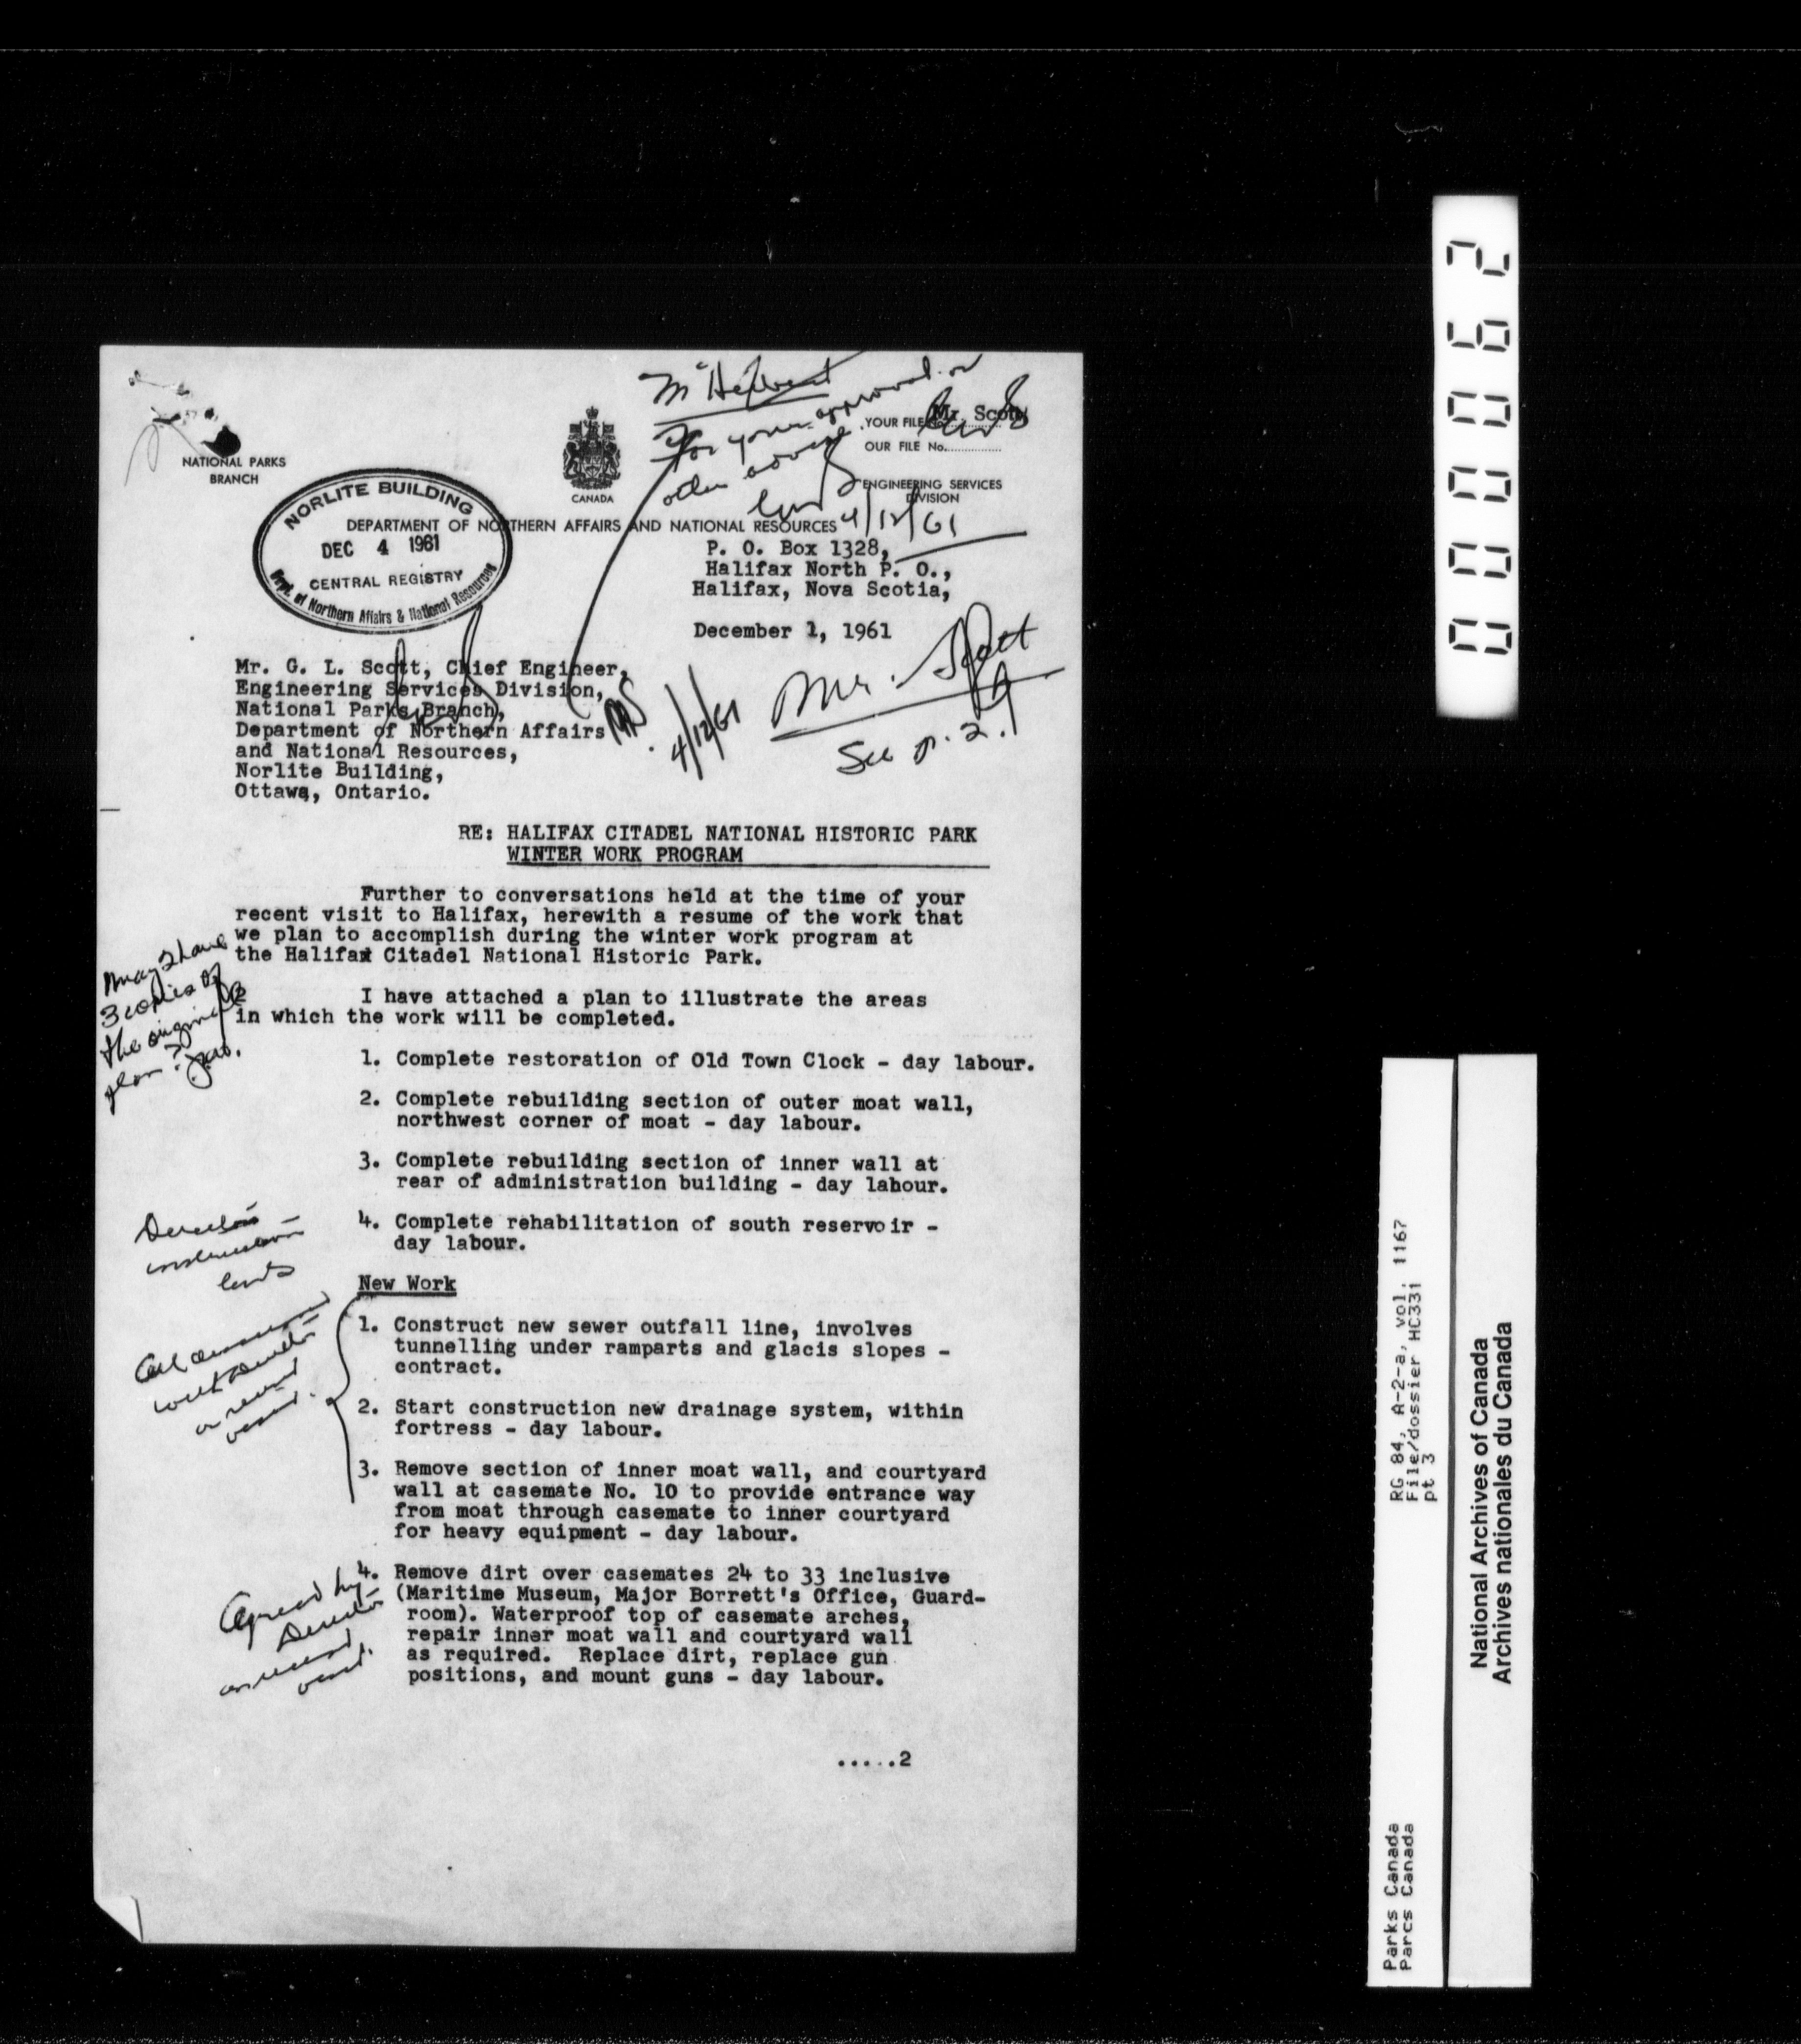 Mr. Scott
YOUR FILE No.
OUR FILE No.
NATIONAL PARKS
BRANCH
CANADA
ENGINEERING SERVICES
DIVISION
DEPARTMENT OF NORTHERN AFFAIRS AND NATIONAL RESOURCES
For your approval or
other advice
4/12/61
NORLITE BUILDING
DEC 4 1961
CENTRAL REGISTRY
Dept. of Northern Affairs & National Resources
P. O. Box 1328,
Halifax North P. O.,
Halifax, Nova Scotia,
December 1, 1961
Mr. G. L. Scott, Chief Engineer,
Engineering Services Division,
National Parks Branch,
Department of Northern Affairs
and National Resources,
Norlite Building,
Ottawa, Ontario.
4/12/61
Mr. Scott
See p. 2.
RE: HALIFAX CITADEL NATIONAL HISTORIC PARK
WINTER WORK PROGRAM
Further to conversations held at the time of your
recent visit to Halifax, herewith a resume of the work that
we plan to accomplish during the winter work program at
the Halifax Citadel National Historic Park.
May I have
3 copies of
the original
plan?
I have attached a plan to illustrate the areas
in which the work will be completed.
1. Complete restoration of Old Town Clock - day labour.
2. Complete rebuilding section of outer moat wall,
northwest corner of moat - day labour.
3. Complete rebuilding section of inner wall at
rear of administration building - day labour.
4. Complete rehabilitation of south reservoir -
day labour.
Director
instructions
New Work
1. Construct new sewer outfall line, involves
tunnelling under ramparts and glacis slopes -
contract.
2. Start construction new drainage system, within
fortress - day labour.
3. Remove section of inner moat wall, and courtyard
wall at casemate No. 10 to provide entrance way
from moat through casemate to inner courtyard
for heavy equipment - day labour.
All discussed
with Director
on recent
visit.
4. Remove dirt over casemates 24 to 33 inclusive
(Maritime Museum, Major Borrett's Office, Guard-
room). Waterproof top of casemate arches,
repair inner moat wall and courtyard wall
as required. Replace dirt, replace gun
positions, and mount guns - day labour.
Agreed by
Director
on recent
visit.
.....2
000062
RG 84, A-2-a, vol. 1167
File/dossier HC331
pt 3
Parks Canada
Parcs Canada
National Archives of Canada
Archives nationales du Canada